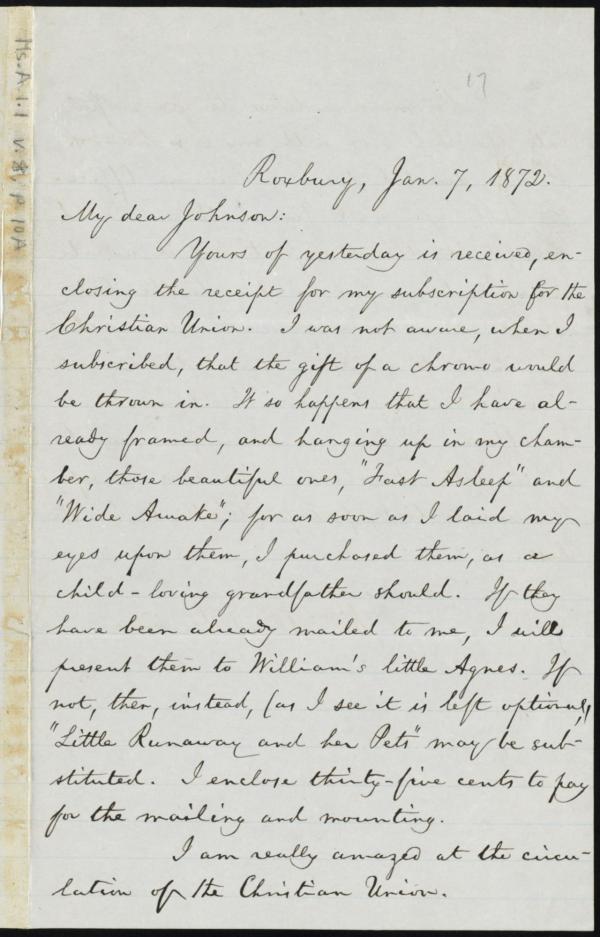 17
Ms. A. 1. 1 v. 8, p. 10A
Roxbury, Jan. 7, 1872.
My dear Johnson:
Yours of yesterday is received, en-
closing the receipt for my subscription for the
Christian Union. I was not aware, when I
subscribed, that the gift of a chromo would
be thrown in. It so happens that I have al-
ready framed, and hanging up in my cham-
ber, those beautiful ones, "Fast Asleep" and
"Wide Awake"; for as soon as I laid my
eyes upon them, I purchased them, as a
child-loving grandfather should. If they
have been already mailed to me, I will
present them to William's little Agnes. If
not, then, instead, (as I see it is left optional,)
"Little Runaway and her Pets" may be sub-
stituted. I enclose thirty-five cents to pay
for the mailing and mounting.
I am really amazed at the circu-
lation of the Christian Union.